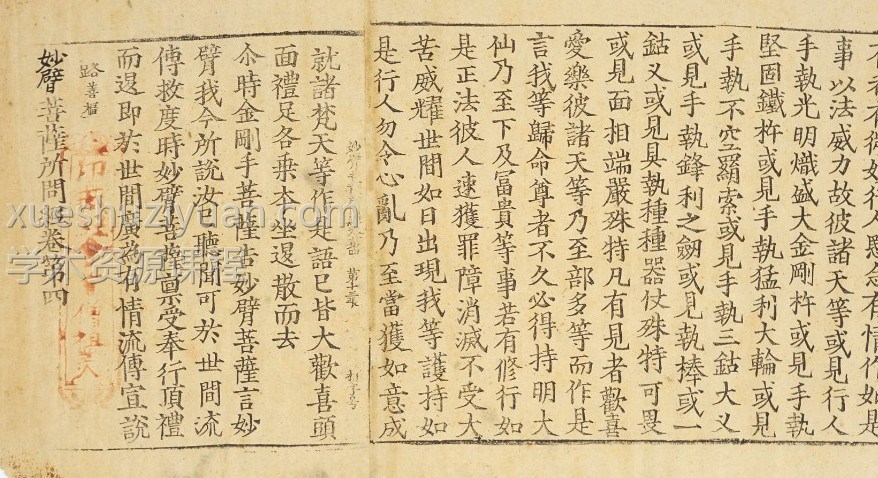 行人愍念有情作如是
事以法威力故彼諸天等或見行人
手執光明熾盛大金剛杵或見手執
堅固鐵杵或見手執猛利大輪或見
手執不空羂索或見手執三鈷大叉
或見手執鋒利之劒或見執棒或一
鈷叉或見具執種種器仗殊特可畏
或見面相端嚴殊特凡有見者歡喜
愛樂彼諸天等乃至部多等而作是
言我等歸命尊者不久必得持明大
仙乃至下及冨貴等事若有修行如
是正法彼人速獲罪障消滅不受大
苦威耀世間如日出現我等護持如
是行人勿令心亂乃至當獲如意成
就諸梵天等作是語已皆大歡喜頭
面禮足各乘本坐退散而去
尒時金剛手菩薩告妙臂菩薩言妙
臂我今所說汝已聽聞可於世間流
傳救度時妙臂菩薩禀受奉行頂禮
而退即於世間廣為有情流傳宣說
路善
妙臂菩薩所問經卷第四
xueshuziyuan.com
学术资源课程